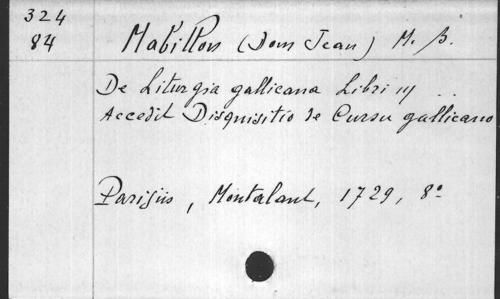 324
84
Mabillon (Dom Jean) M. B.
De Liturgia gallicana Libri iij ..
Accedit Disquisitio de Cursu gallicano
Parisiis, Montalant, 1729, 8º